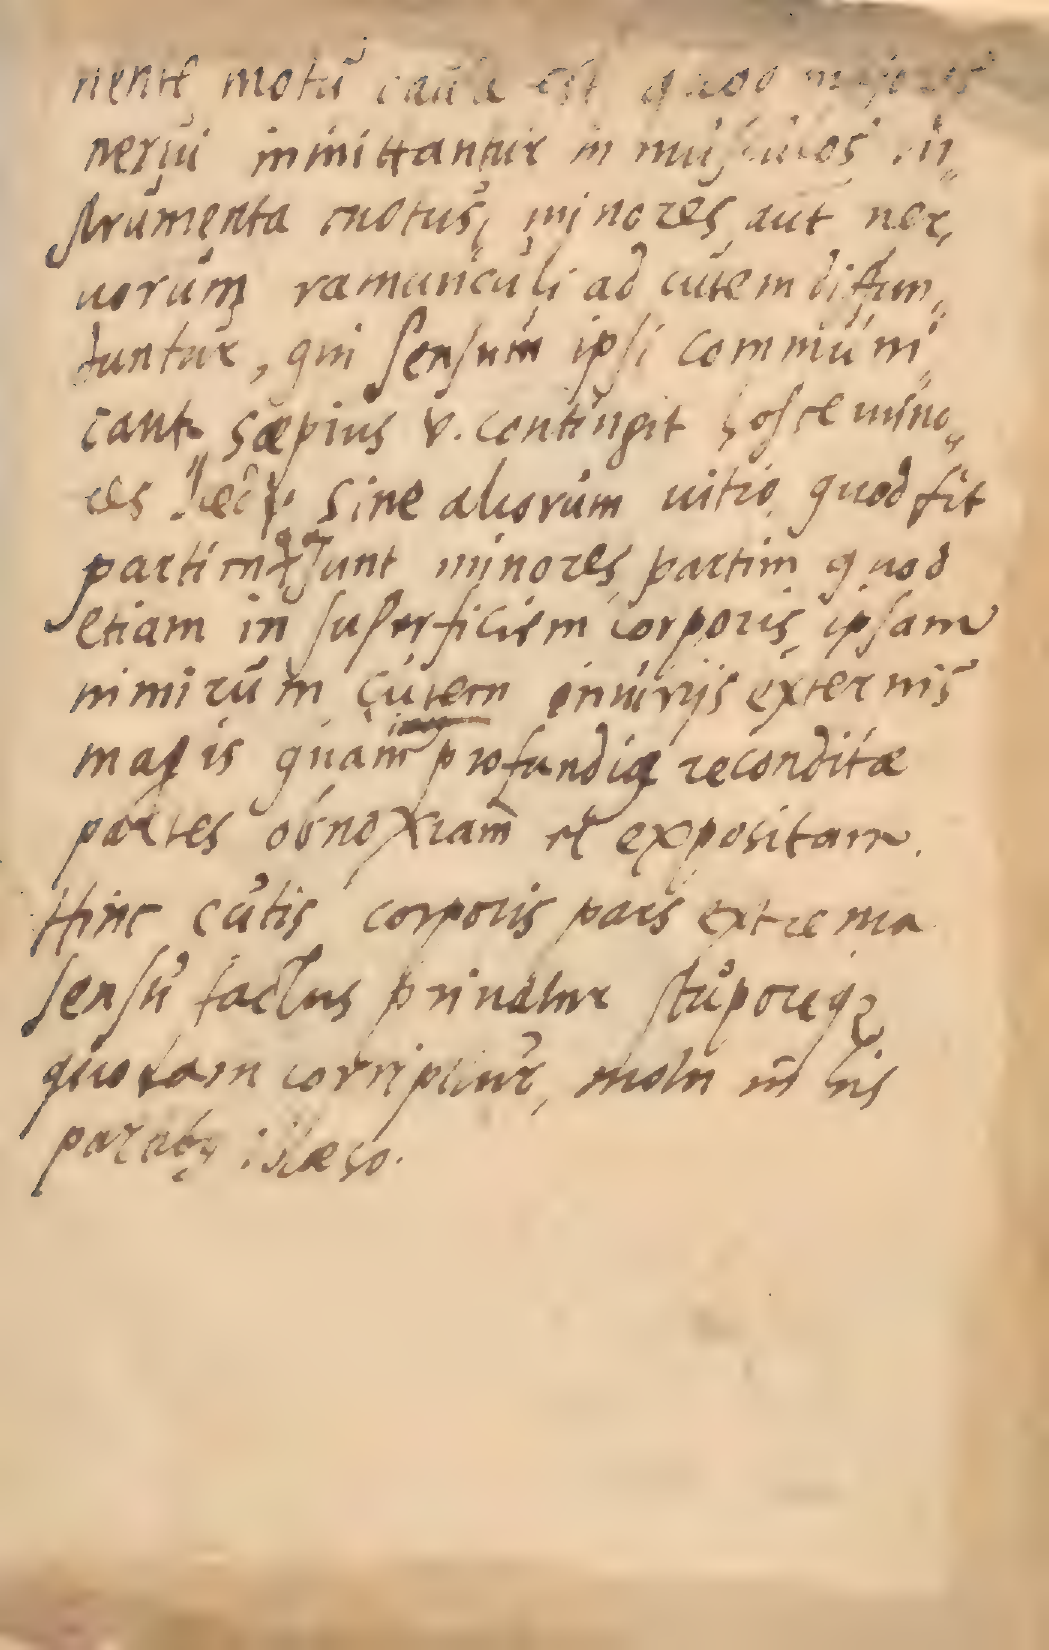 nente motū causa est quod majores
nerui inmittantur in musculos in„
strumenta motus, minores aut ner„
uorum ramunculi ad cutem diffun„
duntur, qui sensum ipsi communi„
cant. Sæpius v. contingit hosce mino„
res sine aliorum uitio, quod fit
partim qa sunt minores partim quod
etiam in superficiem corporis ipsam
nimirum cutem iniurijs externis
magis quam profundiq reconditæ
partes obnoxiam et expositam.
Hinc cutis corporis pars extrema
sensu tactus priuatur stuporeq
quodam corripitur, motu in his
partibꝫ illæso.